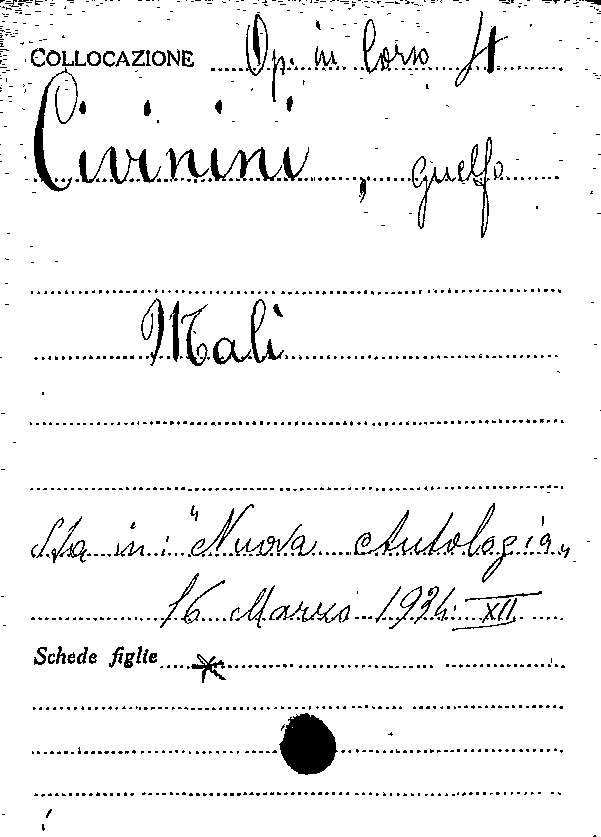 COLLOCAZIONE Op. in Corso It
Civinini, Guelfo
Malì
Sta in: "Nuova Antologia„
16 Marzo 1934. XII
Schede figlie